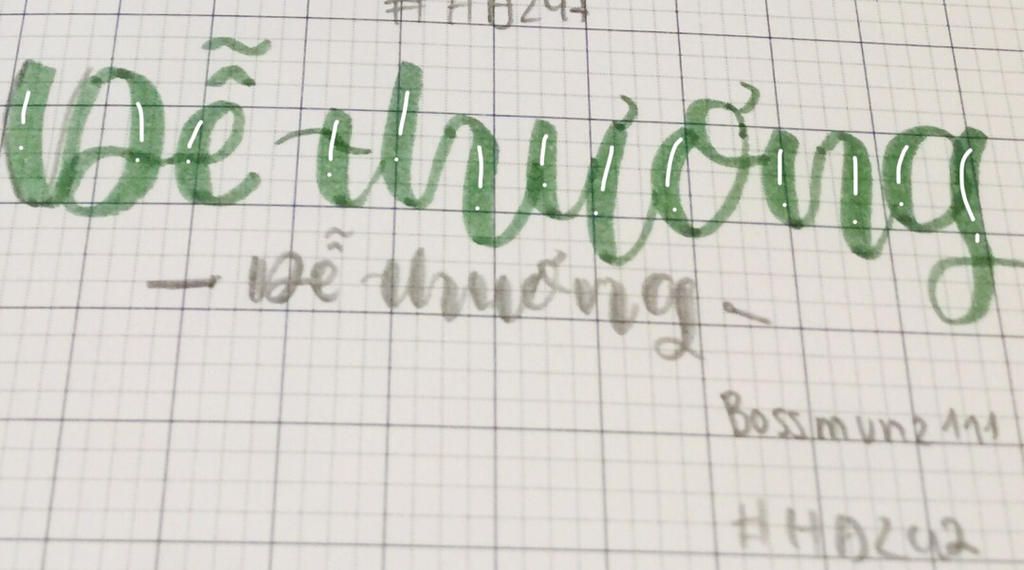 Dễ thương
- Dễ thương -
Bossmun2111
#HD247